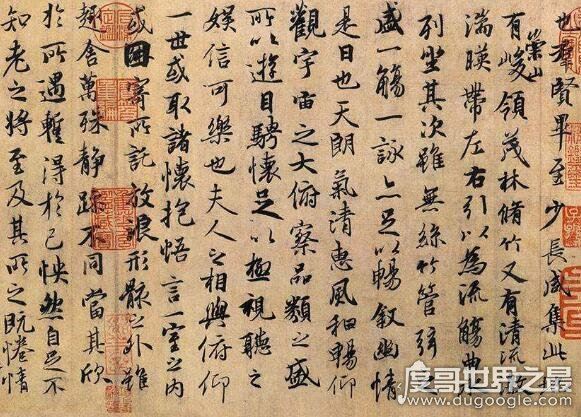 也羣賢畢至少長咸集此
有崇山峻領茂林脩竹又有清流
湍暎帶左右引以為流觴曲
列坐其次雖無絲竹管弦
盛一觴一詠亦足以暢敘幽情
是日也天朗氣清惠風和暢仰
觀宇宙之大俯察品類之盛
所以遊目騁懷足以極視聽之
娛信可樂也夫人之相與俯仰
一世或取諸懷抱悟言一室之內
或因寄所託放浪形骸之外雖
趣舍萬殊靜躁不同當其欣
於所遇暫得於己怏然自足不
知老之將至及其所之既惓情
度哥世界之最
www.dugoogle.com